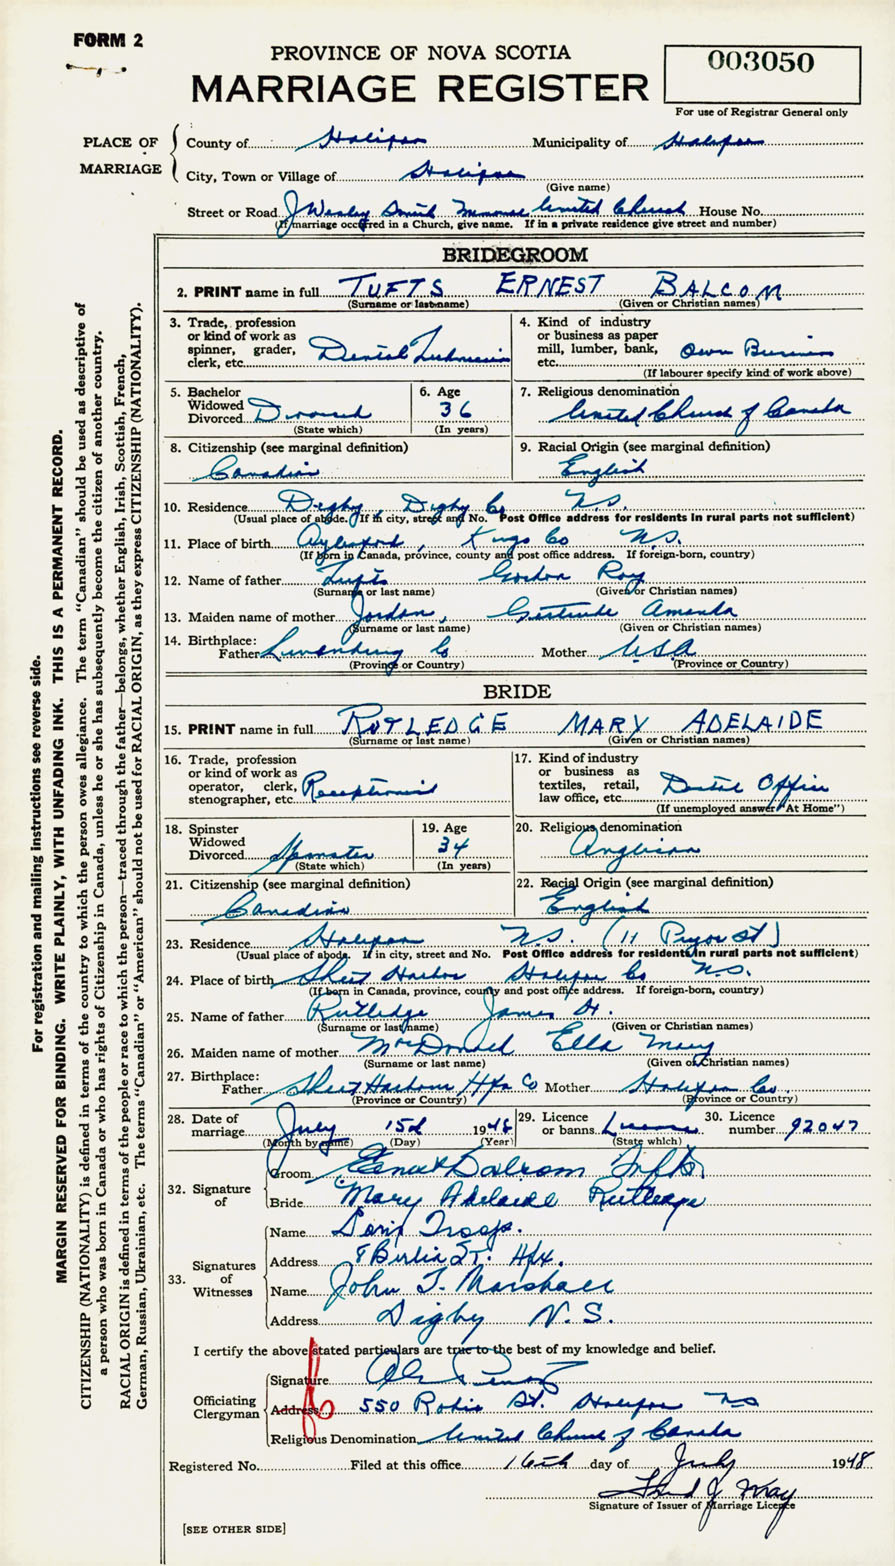 FORM 2
PROVINCE OF NOVA SCOTIA
MARRIAGE REGISTER
003050
For use of Registrar General only
PLACE OF MARRIAGE
County of Halifax Municipality of Halifax
City, Town or Village of Halifax
(Give name)
Street or Road J Wesley Smith Memorial United Church House No.
(If marriage occurred in a Church, give name. If in a private residence give street and number)
BRIDEGROOM
2. PRINT name in full TUFTS ERNEST BALCOM
(Surname or last name) (Given or Christian names)
3. Trade, profession or kind of work as spinner, grader, clerk, etc. Dental Technician
4. Kind of industry or business as paper mill, lumber, bank, etc. Own Business
(If labourer specify kind of work above)
5. Bachelor Widowed Divorced Divorced
(State which)
6. Age 36
(In years)
7. Religious denomination
United Church of Canada
8. Citizenship (see marginal definition)
Canadian
9. Racial Origin (see marginal definition)
English
10. Residence Digby, Digby Co N.S.
(Usual place of abode. If in city, street and No. Post Office address for residents in rural parts not sufficient)
11. Place of birth Aylesford, Kings Co N.S.
(If born in Canada, province, county and post office address. If foreign-born, country)
12. Name of father Tufts Gordon Roy
(Surname or last name) (Given or Christian names)
13. Maiden name of mother Jordan, Gertrude Amanda
(Surname or last name) (Given or Christian names)
14. Birthplace:
Father Lunenburg Co Mother USA
(Province or Country) (Province or Country)
BRIDE
15. PRINT name in full RUTLEDGE MARY ADELAIDE
(Surname or last name) (Given or Christian names)
16. Trade, profession or kind of work as operator, clerk, stenographer, etc. Receptionist
17. Kind of industry or business as textiles, retail, law office, etc. Dental Office
(If unemployed answer "At Home")
18. Spinster Widowed Divorced Spinster
(State which)
19. Age 34
(In years)
20. Religious denomination
Anglican
21. Citizenship (see marginal definition)
Canadian
22. Racial Origin (see marginal definition)
English
23. Residence Halifax N.S. (11 Pryor St)
(Usual place of abode. If in city, street and No. Post Office address for residents in rural parts not sufficient)
24. Place of birth Sheet Harbor Halifax Co N.S.
(If born in Canada, province, county and post office address. If foreign-born, country)
25. Name of father Rutledge James H.
(Surname or last name) (Given or Christian names)
26. Maiden name of mother MacDonald Ella Mary
(Surname or last name) (Given or Christian names)
27. Birthplace:
Father Sheet Harbour Hfx Co Mother Halifax Co.
(Province or Country) (Province or Country)
28. Date of marriage July 15th 1948
(Month by name) (Day) (Year)
29. Licence or banns License
(State which)
30. Licence number 92047
32. Signature of
Groom Ernest Balcom Tufts
Bride Mary Adelaide Rutledge
33. Signatures of Witnesses
Name Doris Troop.
Address 8 Berlin St. Hfx.
Name John T. Marshall
Address Digby N.S.
I certify the above stated particulars are true to the best of my knowledge and belief.
Officiating Clergyman
Signature
Address 550 Robie St. Halifax NS
Religious Denomination United Church of Canada
Registered No. Filed at this office 16th day of July 1948
J. May
Signature of Issuer of Marriage Licence
[SEE OTHER SIDE]
For registration and mailing instructions see reverse side.
MARGIN RESERVED FOR BINDING. WRITE PLAINLY, WITH UNFADING INK. THIS IS A PERMANENT RECORD.
CITIZENSHIP (NATIONALITY) is defined in terms of the country to which the person owes allegiance. The term "Canadian" should be used as descriptive of
a person who was born in Canada or who has rights of Citizenship in Canada, unless he or she has subsequently become the citizen of another country.
RACIAL ORIGIN is defined in terms of the people or race to which the person—traced through the father—belongs, whether English, Irish, Scottish, French,
German, Russian, Ukrainian, etc. The terms "Canadian" or "American" should not be used for RACIAL ORIGIN, as they express CITIZENSHIP (NATIONALITY).